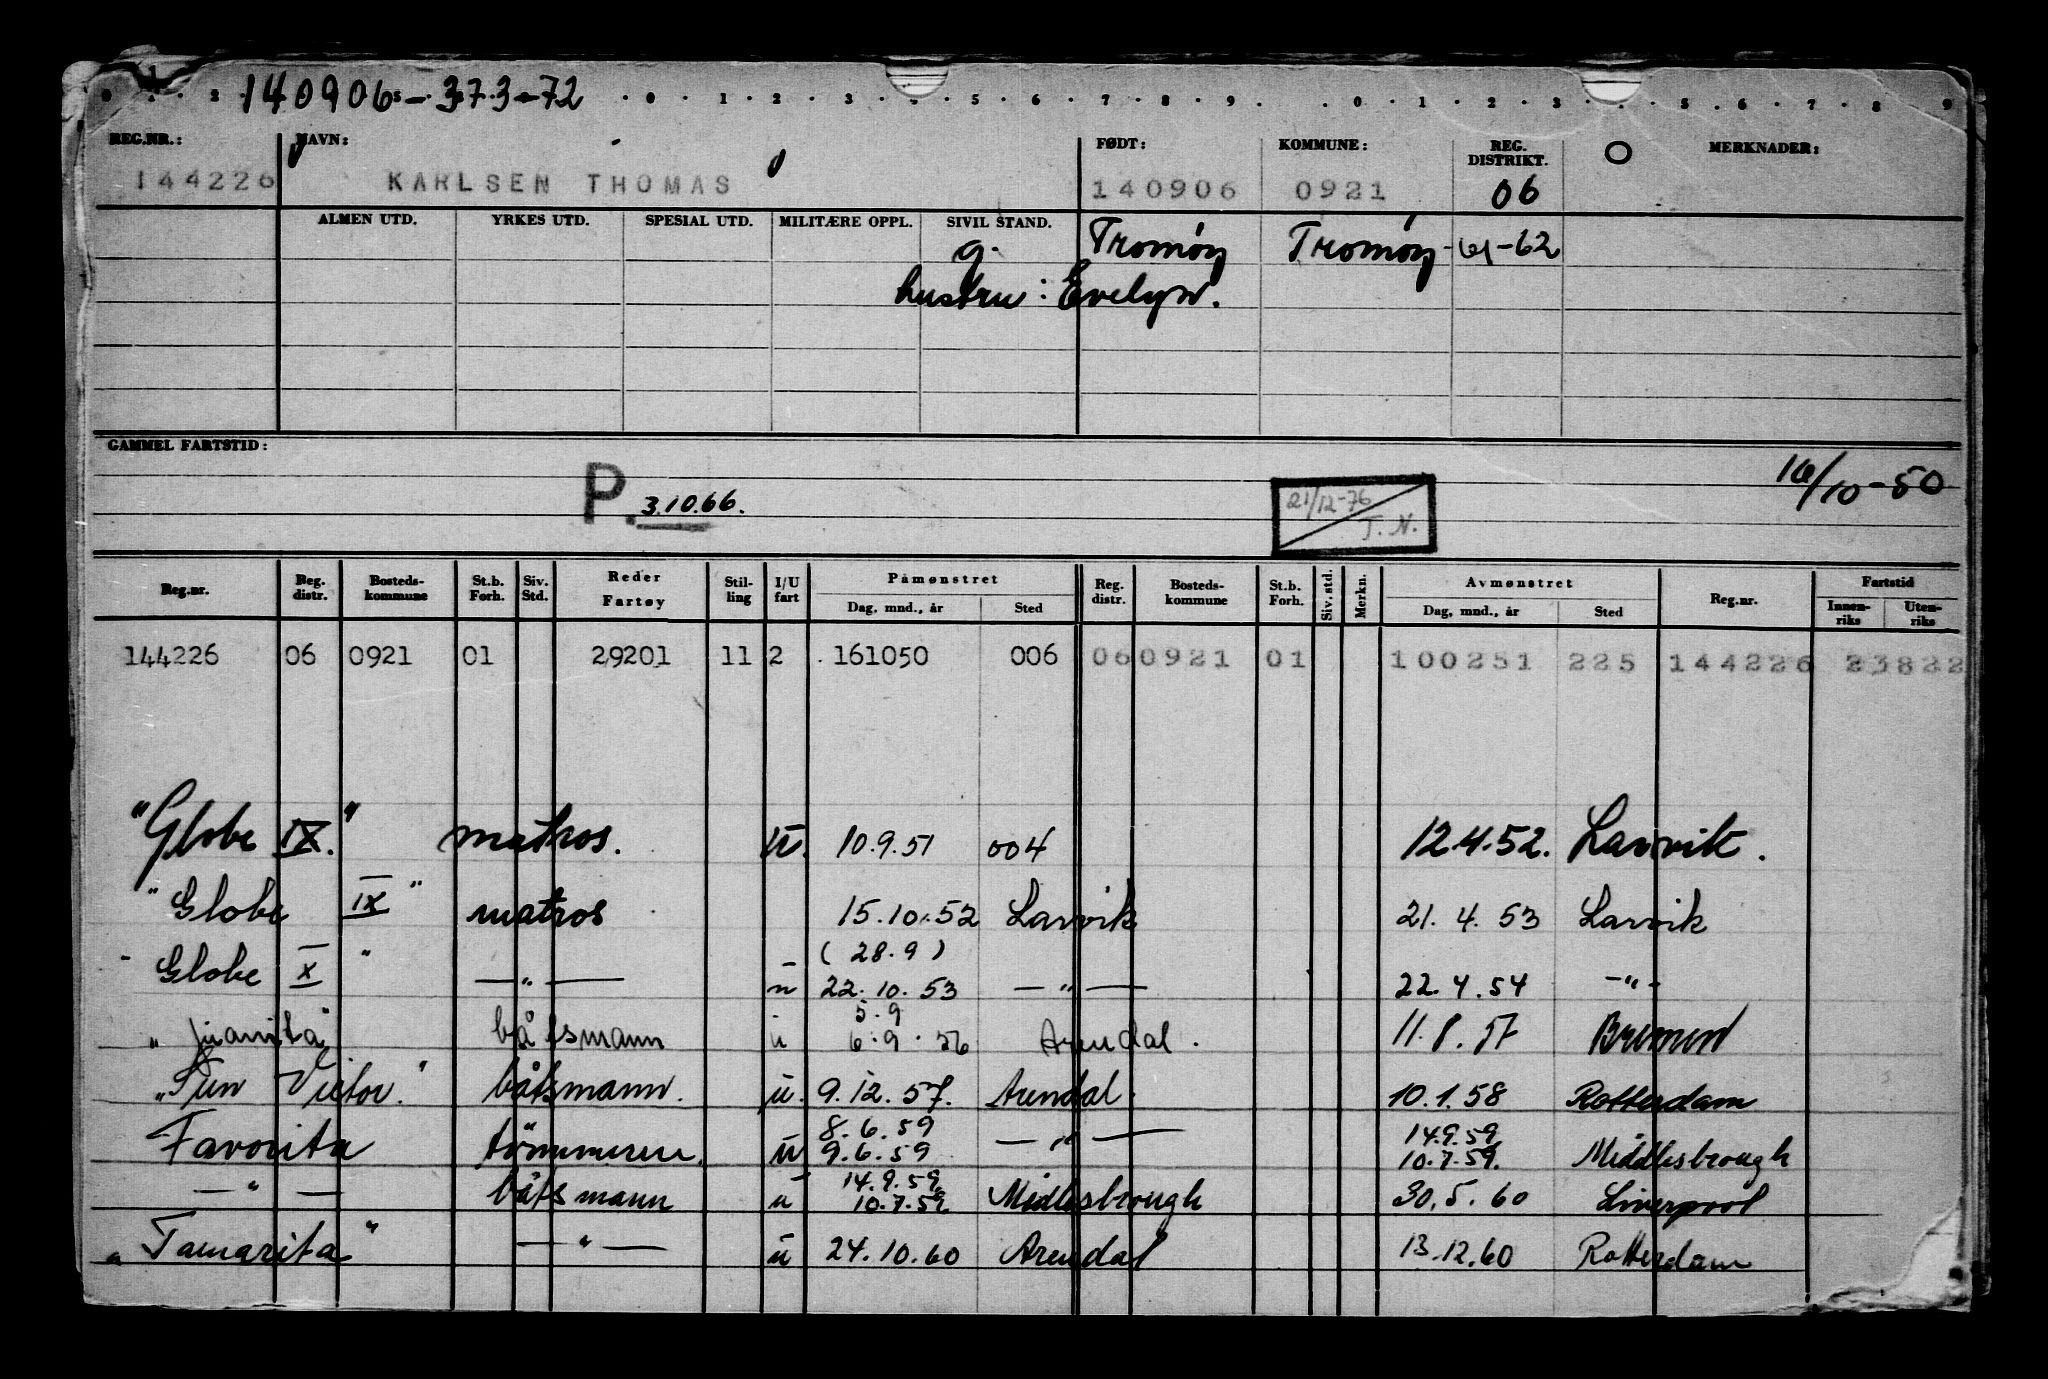 140906 - 373-72
REG.NR.: NAVN: FØDT: KOMMUNE: REG. DISTRIKT. MERKNADER:
144226 KARLSEN THOMAS 140906 0921 06
ALMEN UTD. YRKES UTD. SPESIAL UTD. MILITÆRE OPPL. SIVIL STAND.
g. Tromøy Tromøy -61-62
hustru: Evelyn.
GAMMEL FARTSTID:
16/10-50
P. 3.10.66.
21/12-76
T. N.
Reg.nr. Reg. distr. Bosteds-kommune St.b. Forh. Siv. Std. Reder Fartøy Stil-ling I/U fart Påmønstret Dag, mnd., år Sted Reg. distr. Bosteds-kommune St.b. Forh. Siv. std. Merkn. Avmønstret Dag, mnd., år Sted Reg.nr. Fartstid Innen-riks Uten-riks
144226 06 0921 01 29201 11 2 161050 006 06 0921 01 100251 225 144226 23822
"Globe IX." matros. u. 10.9.51 004 12.4.52. Larvik.
"Globe IX" matros 15.10.52 Larvik 21.4.53 Larvik
(28.9)
"Globe X" —"— u 22.10.53 —"— 22.4.54 —"—
5.9
"Juanita" båtsmann u 6.9.56 Arendal. 11.8.57 Bremen
"Sun Victor." båtsmann. u. 9.12.57. Arendal. 10.1.58 Rotterdam
8.6.59 14.9.59
Favorita tömmerm. u 9.6.59 —"— 10.7.59. Middlesbrough
14.9.59
—"— båtsmann u 10.7.59 Midlesbrough 30.5.60 Liverpool
"Tamarita" —"— u 24.10.60 Arendal 13.12.60 Rotterdam